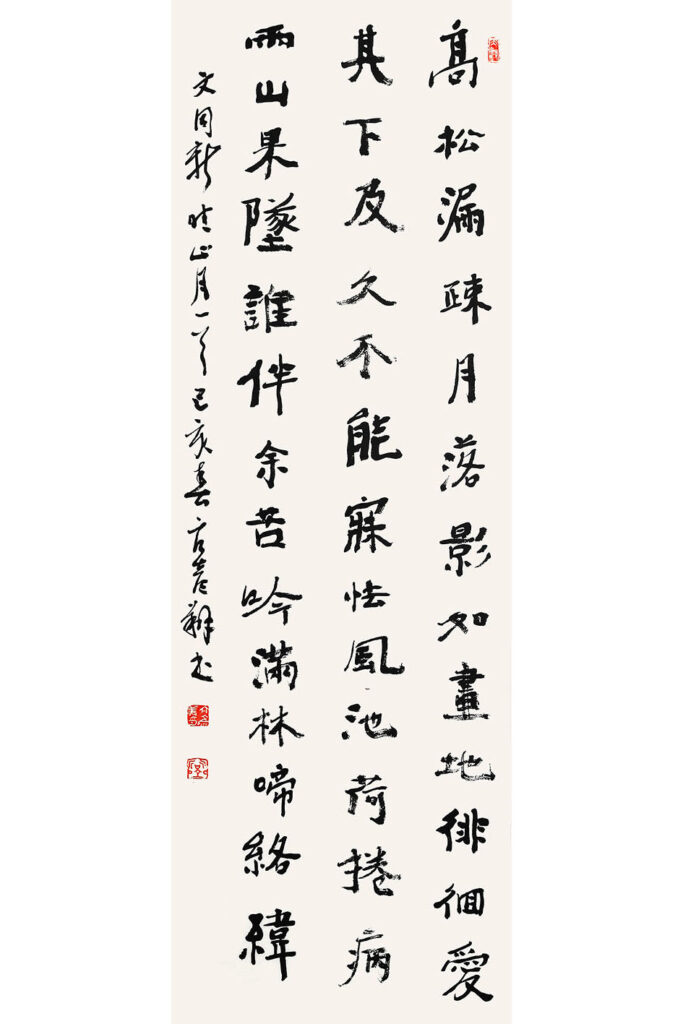 高松漏疎月落影如畫地徘徊愛
其下及久不能寐怯風池荷捲病
雨山果墜誰伴余苦吟滿林啼絡緯
文同新晴山月一首己亥春